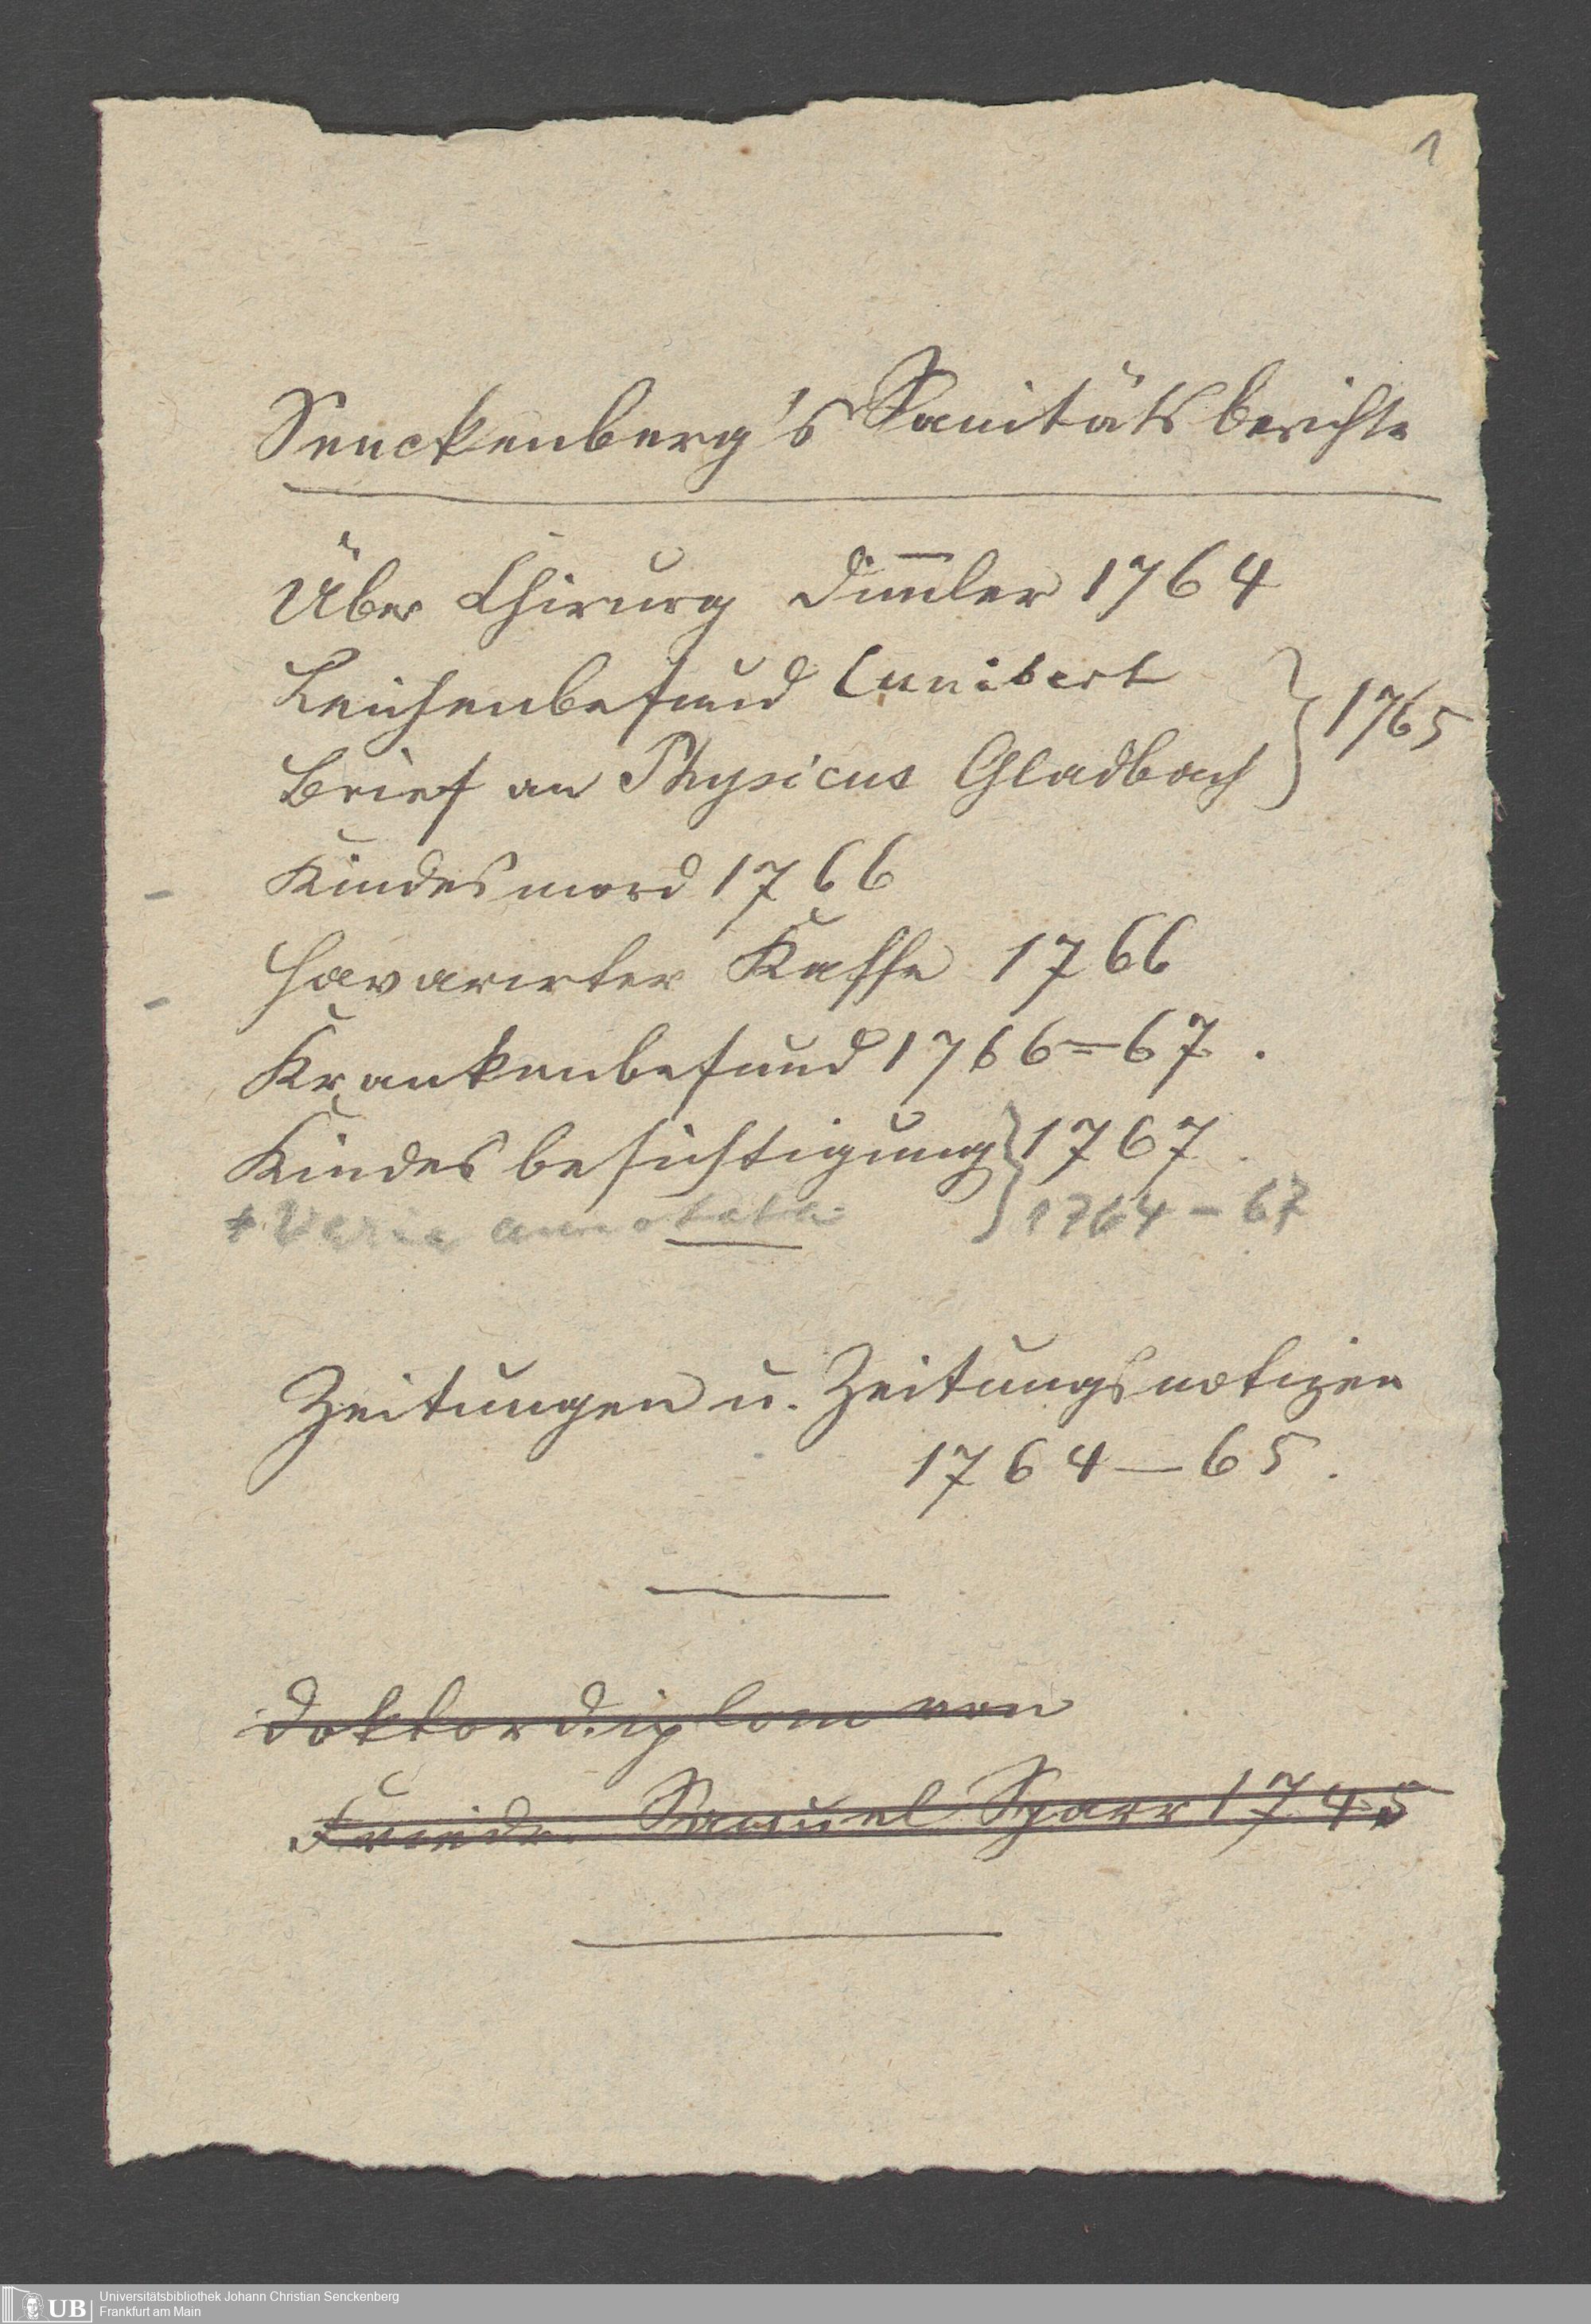 1
Senckenberg's Sanitätsberichte
Über Chirurg Dim̅ler 1764
Leichenbefund Cunibert
Brief an Physicus Gladbach } 1765
Kindesmord 1766
Havarirter Kaffe 1766
Krankenbefund 1766=67.
Kindesbesichtigung } 1767.
+ Varia annotata } 1764-67
Zeitungen u. Zeitungsnotizen
1764-65.
Doktordiplom von
Friedr. Samuel Sparr 1745
UB Universitätsbibliothek Johann Christian Senckenberg
Frankfurt am Main